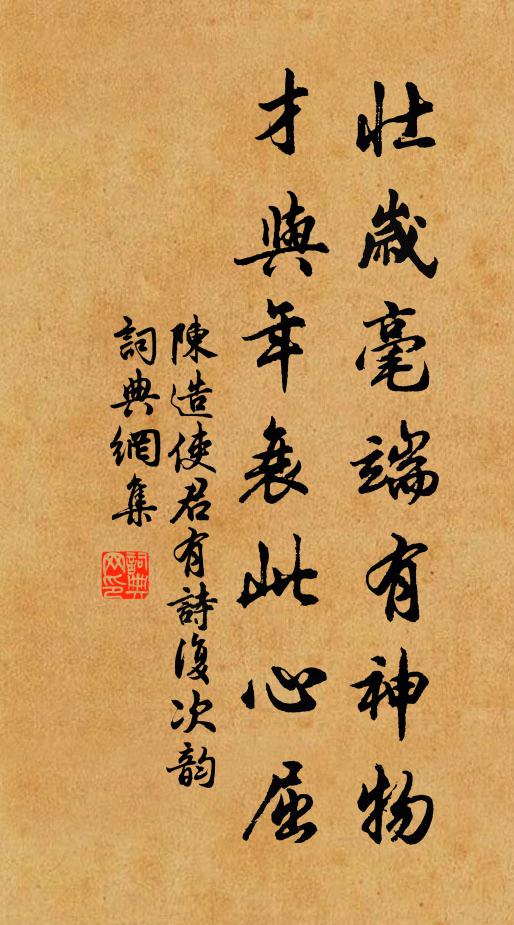 壯歲毫端有神物
才與年衰此心屈
陳造使君有詩復次韵
詞典網集
詞典網印